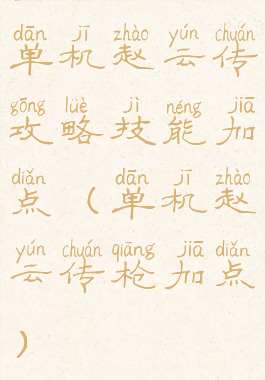 dān jī zhào yún chuán
单机赵云传
gōng lüè jì néng jiā
攻略技能加
diǎn dān jī zhào
点(单机赵
yún chuán qiāng jiā diǎn
云传枪加点
)